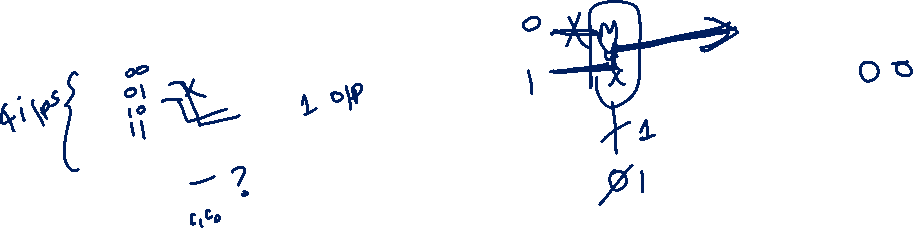 4 i/ps
00
01
10
11
1 o/p
?
C1 C0
0
1
1
0 1
0 0